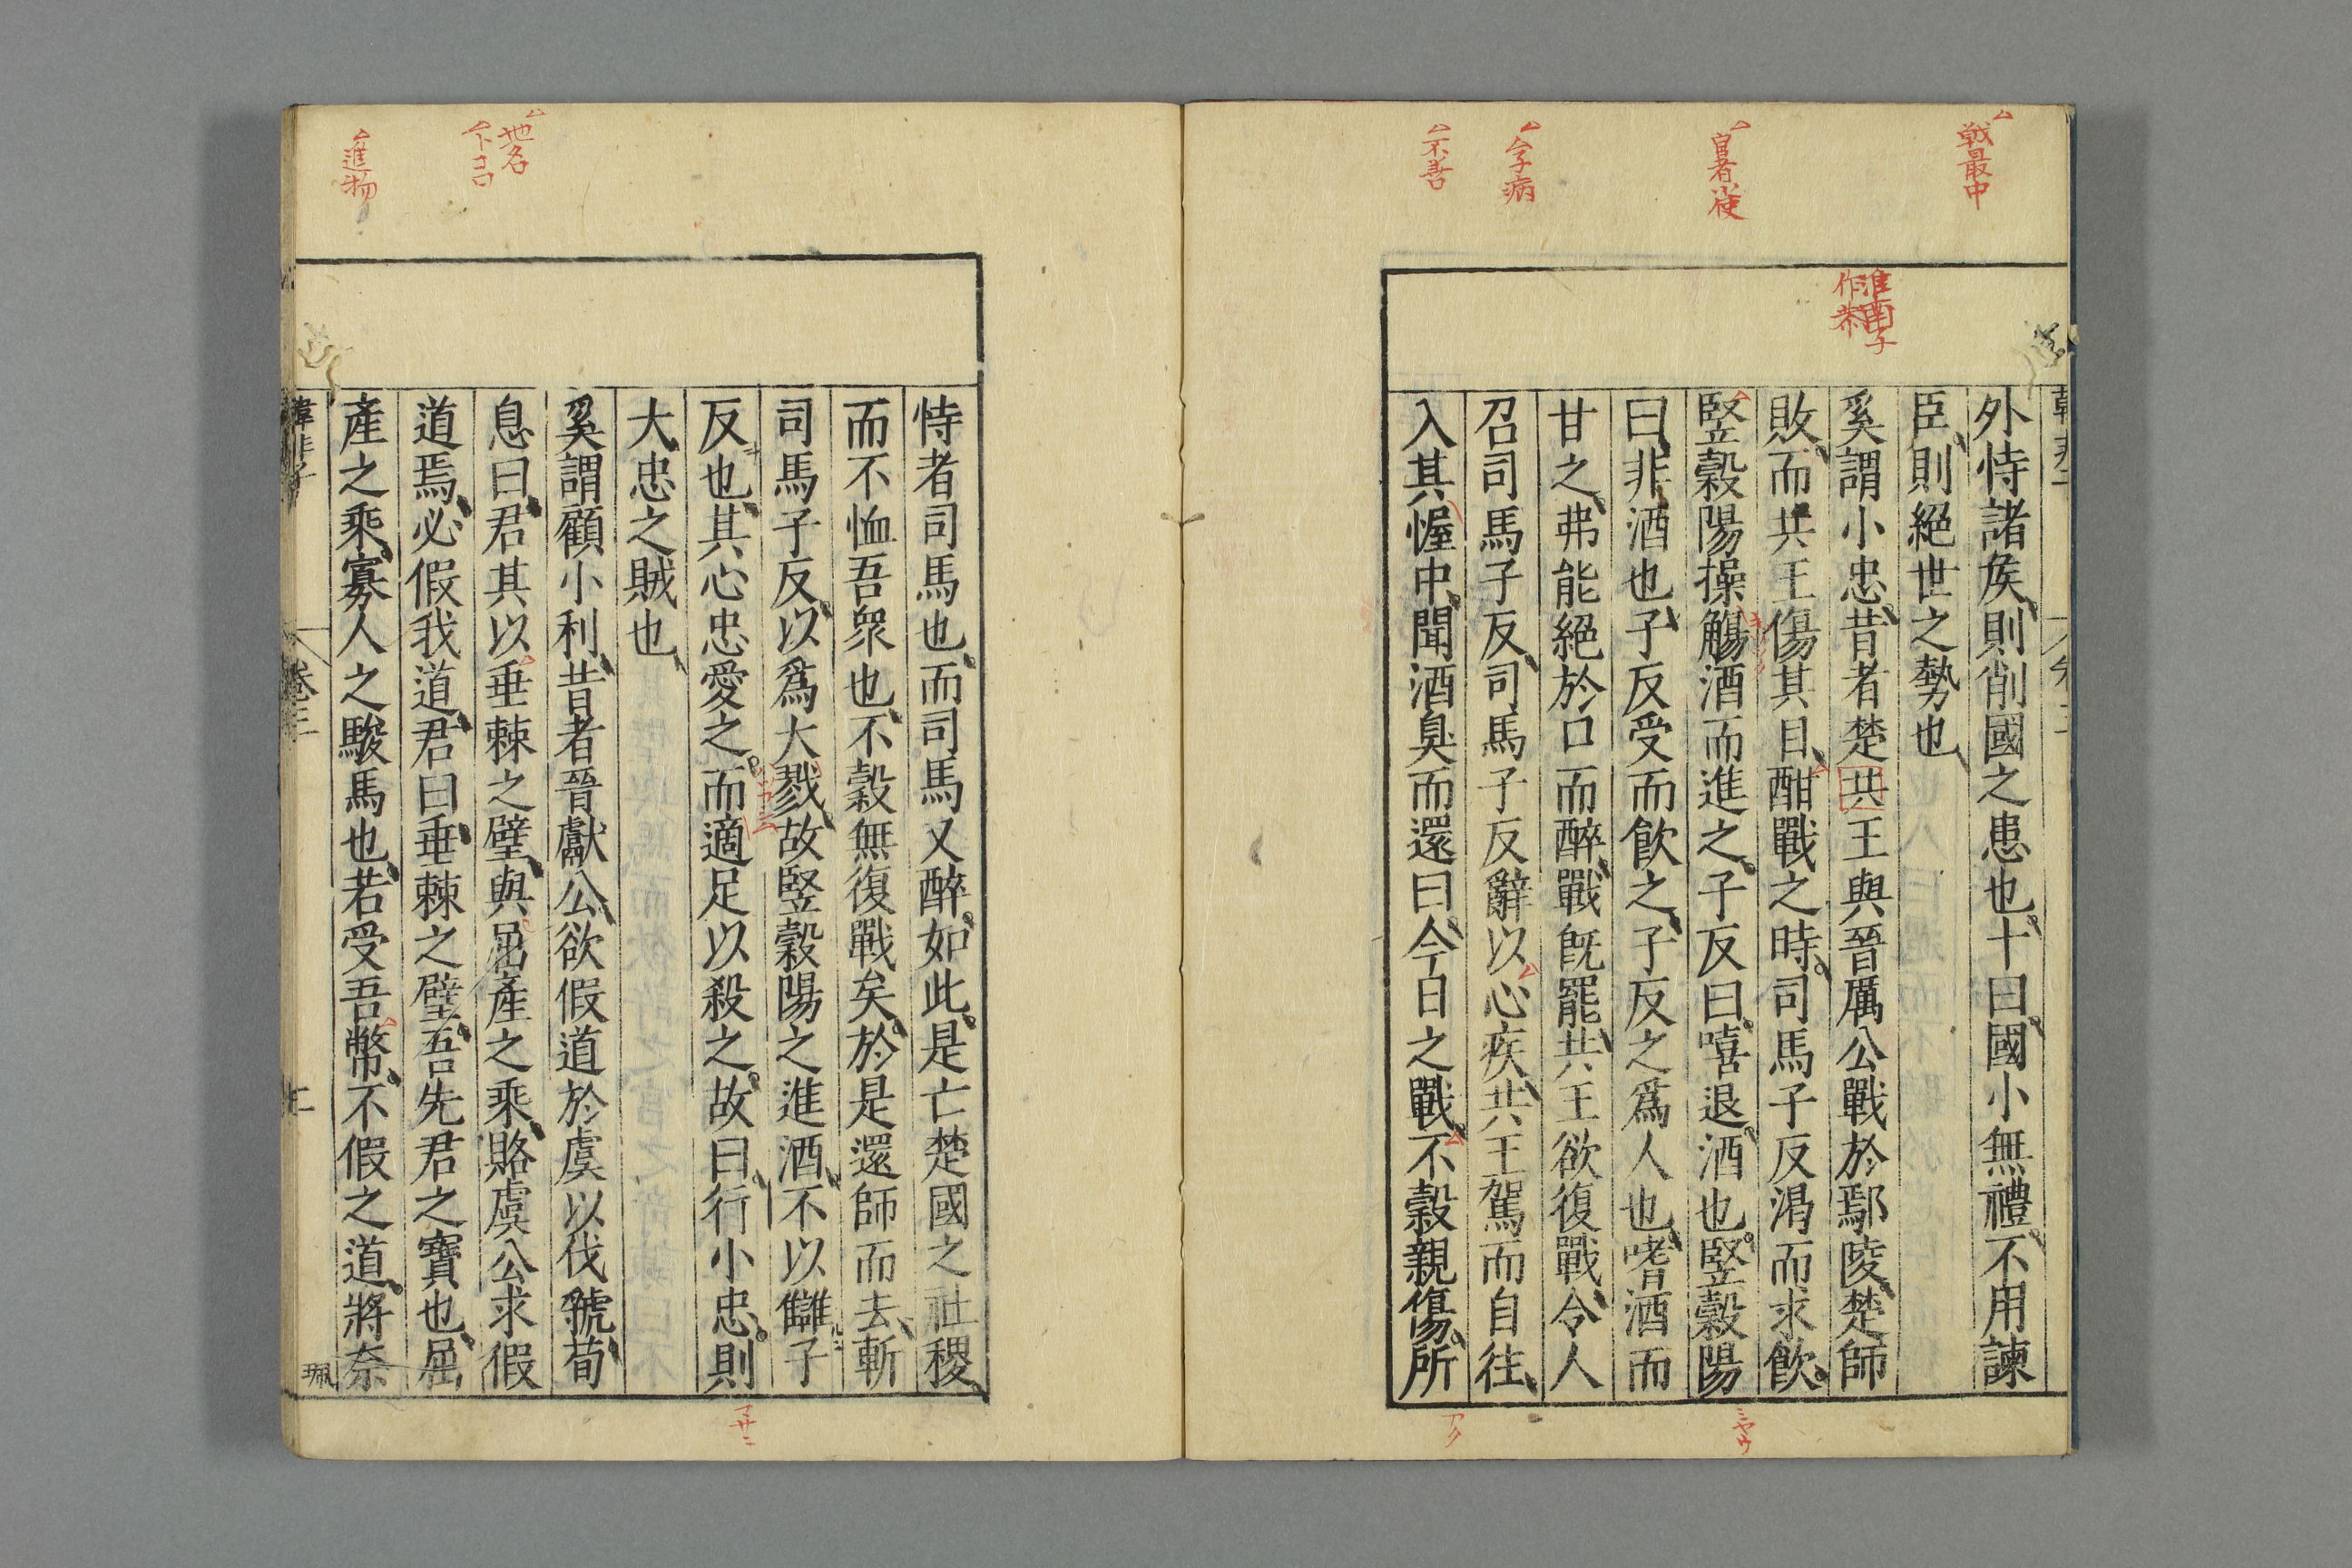 戦最中
宦者小使
令子病
不善
淮南子
作恭
外恃諸侯則削國之患也十曰國小無禮不用諫
臣則絕世之勢也
奚謂小忠昔者楚共王與晉厲公戰於鄢陵楚師
敗而共王傷其目酣戰之時司馬子反渴而求飲
豎穀陽操觴酒而進之子反曰嘻退酒也豎穀陽
曰非酒也子反受而飲之子反之爲人也嗜酒而
甘之弗能絕於口而醉戰旣罷共王欲復戰令人
召司馬子反司馬子反辭以心疾共王駕而自往
入其幄中聞酒臭而還曰今日之戰不穀親傷所
ミヤウ
アク
地名
下ヨコ
進物
恃者司馬也而司馬又醉如此是亡楚國之社稷
而不恤吾眾也不穀無復戰矣於是還師而去斬
司馬子反以爲大戮故豎穀陽之進酒不以讎子
反也其心忠愛之而適足以殺之故曰行小忠則
大忠之賊也
奚謂顧小利昔者晉獻公欲假道於虞以伐虢荀
息曰君其以垂棘之璧與屈產之乘賂虞公求假
道焉必假我道君曰垂棘之璧吾先君之寶也屈
產之乘寡人之駿馬也若受吾幣不假之道將奈
韓非子 卷三 二
マサニ